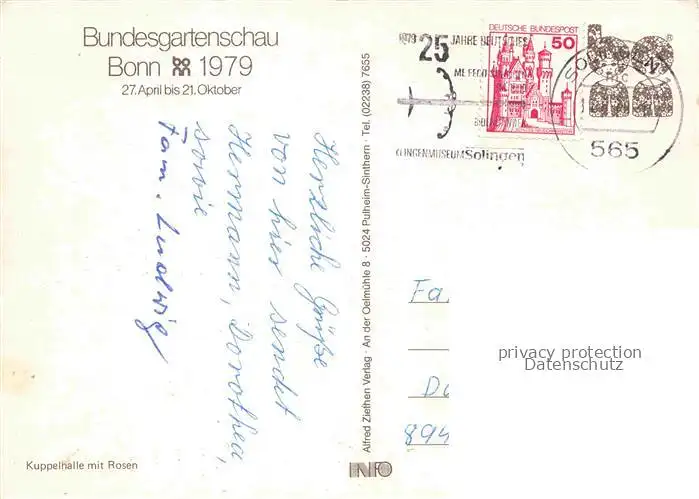 Bundesgartenschau
Bonn 1979
27. April bis 21. Oktober
Herzliche Grüße
von hier sendet
Hermann, Dorothea,
sowie
Fam. Ludwig
Kuppelhalle mit Rosen
Alfred Ziethen Verlag · An der Oelmühle 8 · 5024 Pulheim-Sinthern · Tel. (02238) 7655
INFO
1979
25 JAHRE DEUTSCHES
KLINGENMUSEUM Solingen
DEUTSCHE BUNDESPOST
50
SOLINGEN
565
Fa
privacy protection
Datenschutz
Do
894